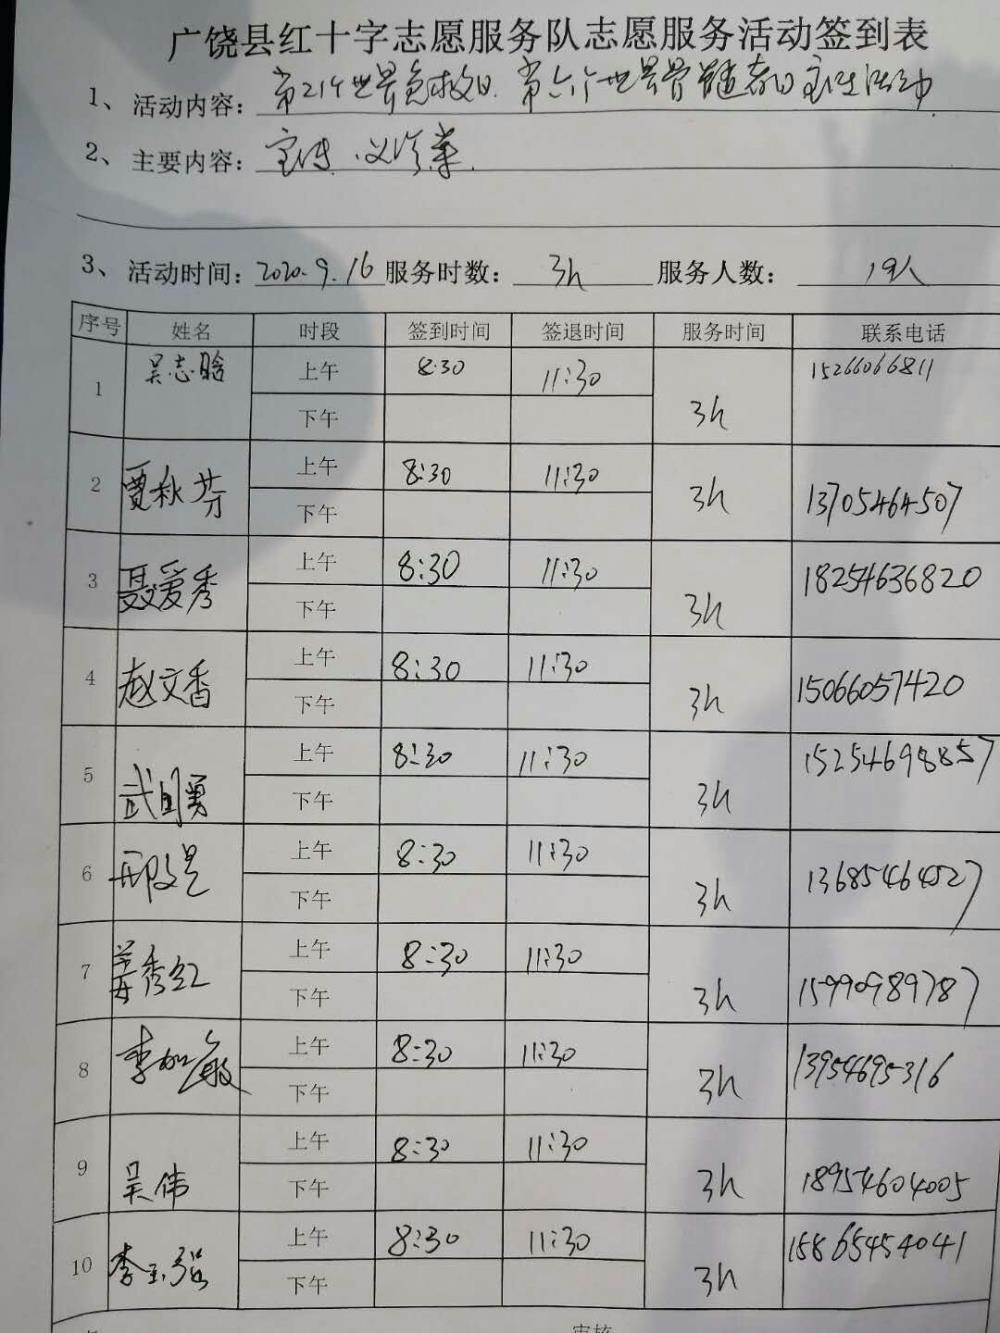 广饶县红十字志愿服务队志愿服务活动签到表
1、活动内容：第21个世界急救日、第六个世界骨髓者日宣传活动
2、主要内容：宣传、义诊等
3、活动时间：2020.9.16 服务时数：3h 服务人数：19人
序号 姓名 时段 签到时间 签退时间 服务时间 联系电话
1 吴志晗 上午 8:30 11:30 3h 15266066811
下午
2 贾秋芬 上午 8:30 11:30 3h 13705464507
下午
3 聂爱秀 上午 8:30 11:30 3h 18254636820
下午
4 赵文香 上午 8:30 11:30 3h 15066057420
下午
5 武国勇 上午 8:30 11:30 3h 15254698857
下午
6 邢 上午 8:30 11:30 3h 13685464527
下午
7 秀红 上午 8:30 11:30 3h 15990989787
下午
8 李加敏 上午 8:30 11:30 3h 13954695316
下午
9 吴伟 上午 8:30 11:30 3h 18954604005
下午
10 李玉强 上午 8:30 11:30 3h 15865454041
下午
审核